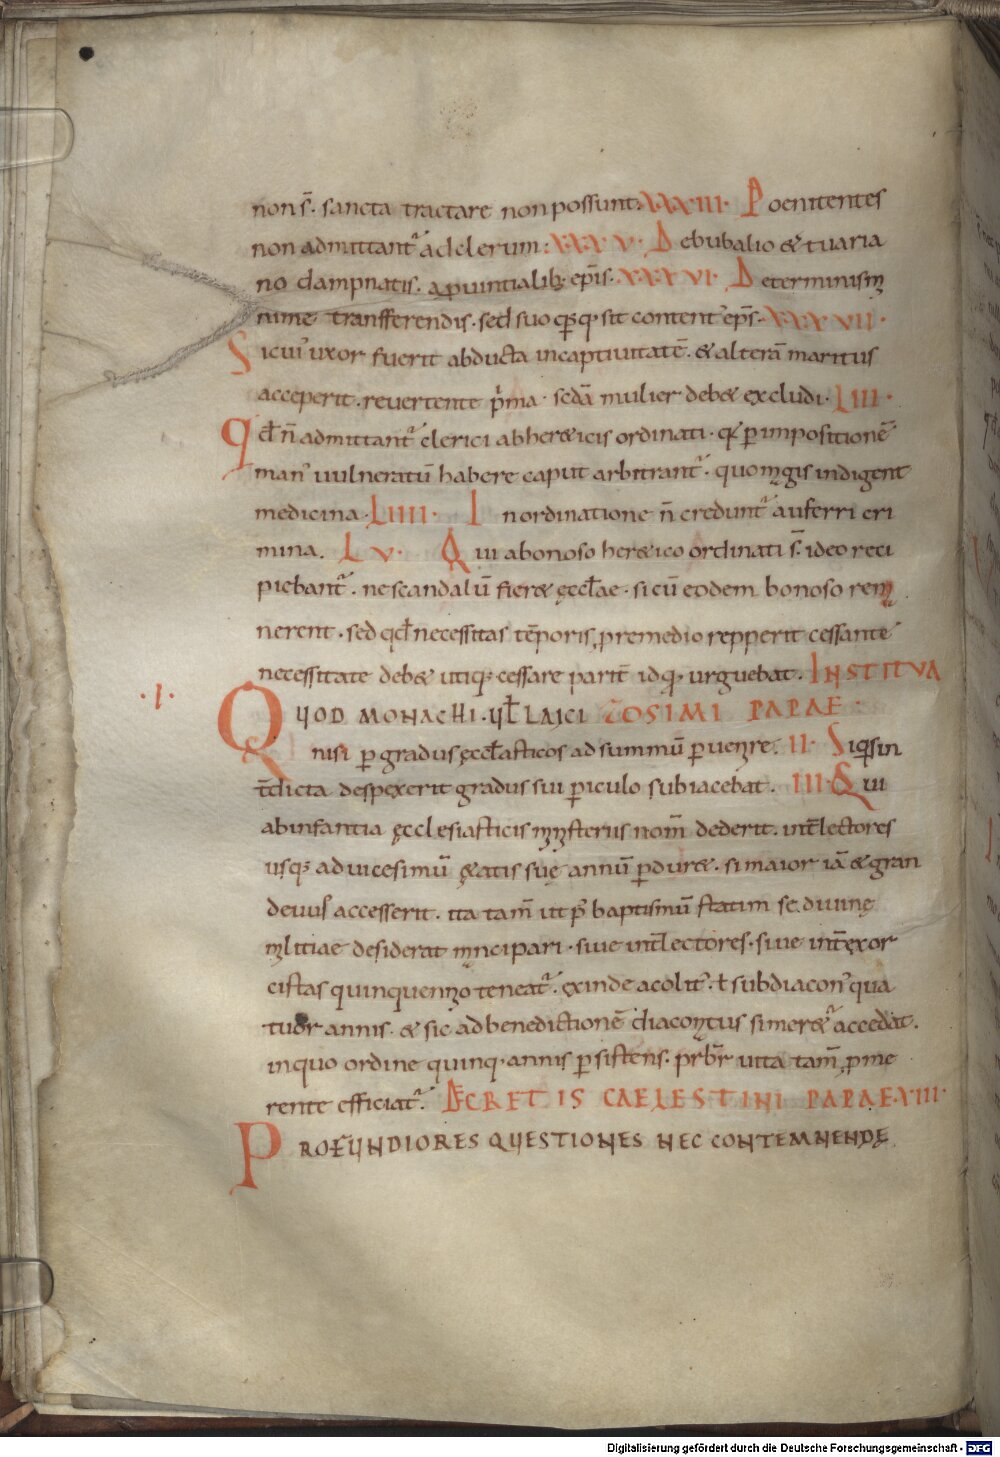 non s̄. sancta tractare non possunt. XXXIII. Poenitentes
non admittantur̃ ad clerum: XXXV. De bubalio & tuaria
no dampnatis. a ꝓuintialib; ep̄is. XXXVI. De terminism
nime transfferendis. sed suo q̄sq; sit content' ep̄s. XXXVII.
Si cui' uxor fuerit abducta in captiuitatē. & alterā maritus
acceperit. reuertente p̄ma. sedā mulier deb& excludi. LIII.
Qd̄ n̄ admittant̃ clerici ab her&icis ordinati. q̄ ꝑ impositionē
man' uulneratū habere caput arbitrant̃. quo magis indigent
medicina. LIIII. In ordinatione n̄ credunt̃ auferri cri
mina. LV. Qui a bonoso her&ico ordinati s̄. ideo reci
piebant̃. ne scandalū fier& ęccl̄ae. si cū eodem bonoso rem
nerent. sed qd̄ necessitas tēporis, ꝓ remedio repperit cessante
necessitate deb& utiq; cessare parit̄ idq; urguebat. INSTITUA
.I. QUOD MONACHI. UL̄ LAICI ZOSIMI PAPAE.
nisi ꝑ gradus ęccl̄asticos ad summū ꝑuenire. II. Si q̄s in
t̄dicta despexerit gradus sui ꝑiculo subiacebat. III. Qui
ab infantia ęcclesiasticis mynsteriis nom̄ dederit. int̄ lectores
usq; ad uicesimū ę&atis suę annū ꝑdur&. si maior iā & gran
deuus accesserit. ita tam̄ ut p' baptismū statim se diuinę
militiae desiderat mancipari. siue int̄ lectores. siue int̄ exor
cistas quinquennio teneat̃. exinde acolit'. ł subdiacon' qua
tuor annis. & sic ad benedictionē diaconatus si mer&̃ accedat.
in quo ordine quinq; annis ꝑsistens. p̄rbr̄ uita tam̄, ꝓme
rente efficiat̃. DECRETIS CAELESTINI PAPAE. XIII.
PROFUNDIORES QUESTIONES NEC CONTEMNENDĘ
Digitalisierung gefördert durch die Deutsche Forschungsgemeinschaft - DFG